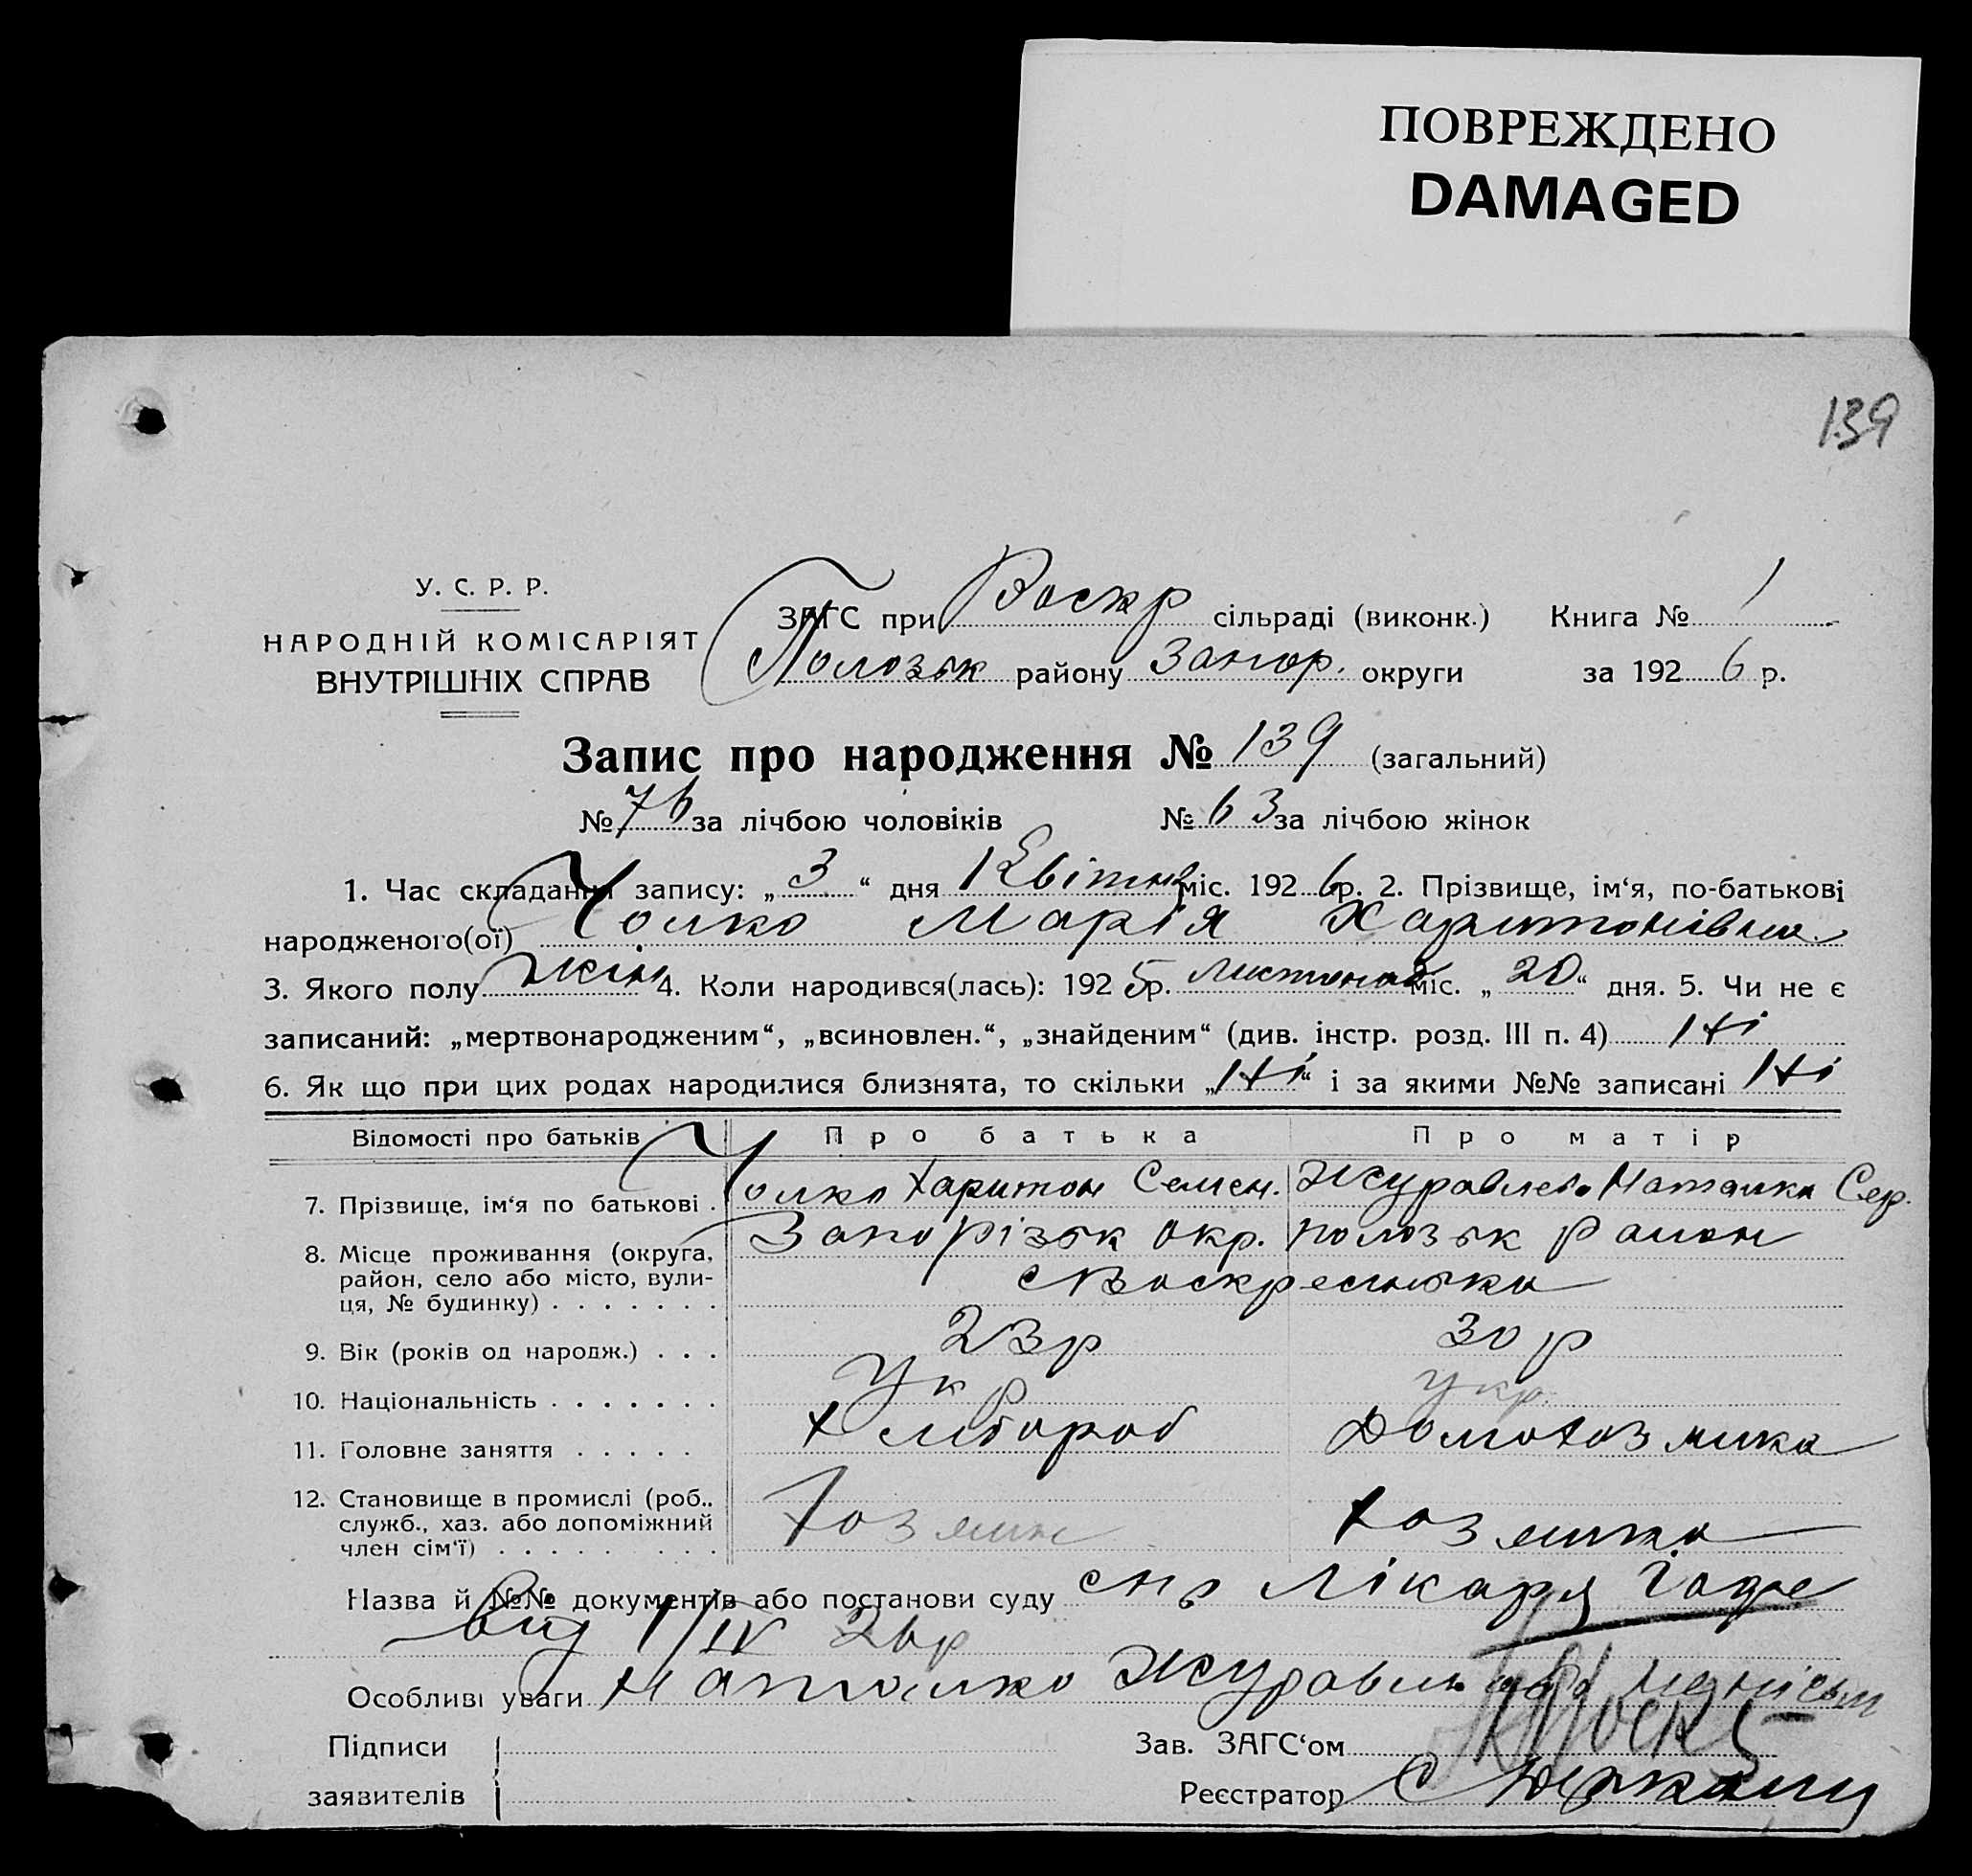 ПОВРЕЖДЕНО
DAMAGED
139
У. С. Р. Р.
НАРОДНІЙ КОМІСАРІЯТ
ВНУТРІШНІХ СПРАВ
ЗАГС при Воскр сільраді (виконк.) Книга № 1
Пологзьк району Запор. округи за 1926 р.
Запис про народження № 139 (загальний)
№ 76 за лічбою чоловіків № 63 за лічбою жінок
1. Час складання запису: „3“ дня Квітня міс. 1926 р. 2. Прізвище, ім‘я, по-батькові
народженого(ої) Чолко Марія Харитонівна
3. Якого полу жін 4. Коли народився(лась): 1925 р. листопад міс. „20“ дня. 5. Чи не є
записаний: „мертвонародженим“, „всиновлен.“, „знайденим“ (див. інстр. розд. III п. 4) Ні
6. Як що при цих родах народилися близнята, то скільки „Ні“ і за якими №№ записані Ні
Відомості про батьків Про батька Про матір
7. Прізвище, ім‘я по батькові . Чолко Харитон Семен. Журавлева Наталка Сер.
8. Місце проживання (округа, Запорізьк окр. полозьк район
район, село або місто, вули- с Воскресенька
ця, № будинку) . . . . . . .
9. Вік (років од народж.) . . . 23 р 30 р
10. Національність . . . . . . . Укр укр.
11. Головне заняття . . . . . Хлібороб Домохозяика
12. Становище в промислі (роб.,
служб., хаз. або допоміжний Хозяин хозяика
член сім‘ї) . . . . . . . . .
Назва й №№ документів або постанови суду спр Лікаря
Від 1/IV 26 р
Особливі уваги Наталка Журавльова
Підписи Зав. ЗАГС‘ом
заявителів Реєстратор